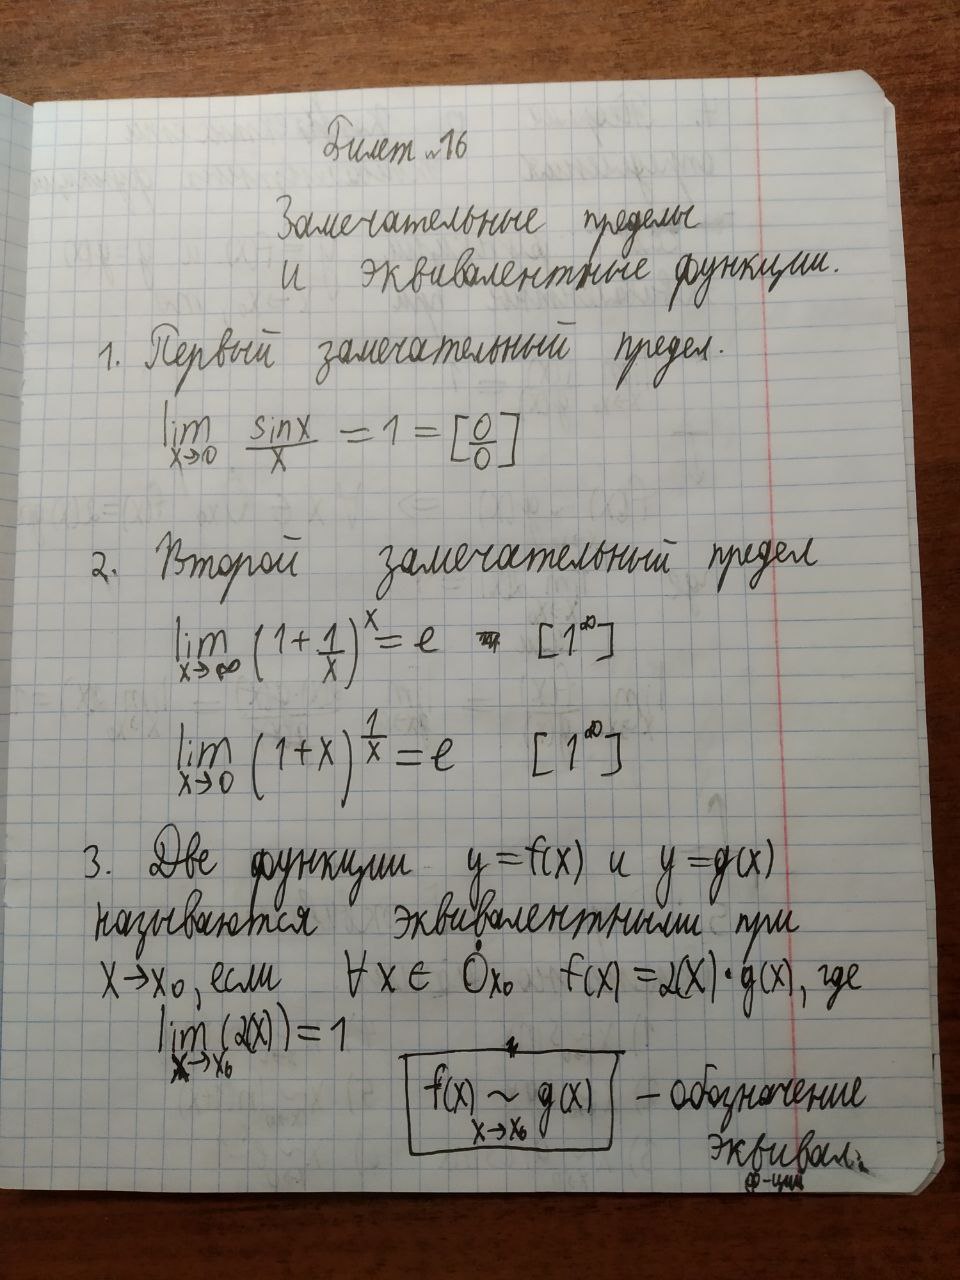 Билет №16
Замечательные пределы
и эквивалентные функции.
1. Первый замечательный предел.
lim x→0 sinx/x = 1 = [0/0]
2. Второй замечательный предел
lim x→∞ (1+1/x)^x = e [1^∞]
lim x→0 (1+x)^(1/x) = e [1^∞]
3. Две функции y=f(x) и y=g(x)
называются эквивалентными при
x→x₀, если ∀x∈ Ȯx₀ f(x)=α(x)·g(x), где
lim x→x₀ (α(x))=1
f(x) ~ x→x₀ g(x) – обозначение
эквивал.
ф-ций